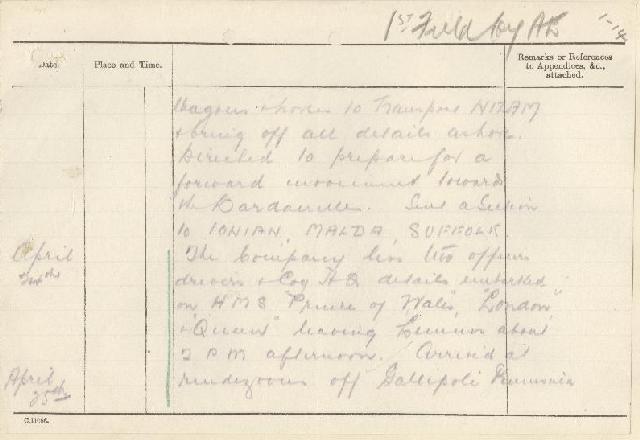 1ST Field Coy AE
1-14
Date.
Place and Time.
Remarks or References
to Appendices, &c.,
attached.
Wagons & horses to Transport NIZAM
& bring off all details ashore.
Directed to prepare for a
forward movement towards
the Dardanelles. Sent a Section
to IONIAN, MALDA, SUFFOLK.
April
24th
The Company less two officers
drivers & Coy HQ details embarked
on HMS "Prince of Wales", "London",
& "Queen" leaving Lemnos about
2 PM afternoon. Arrived at
April
25th
rendezvous off Gallipoli Peninsula